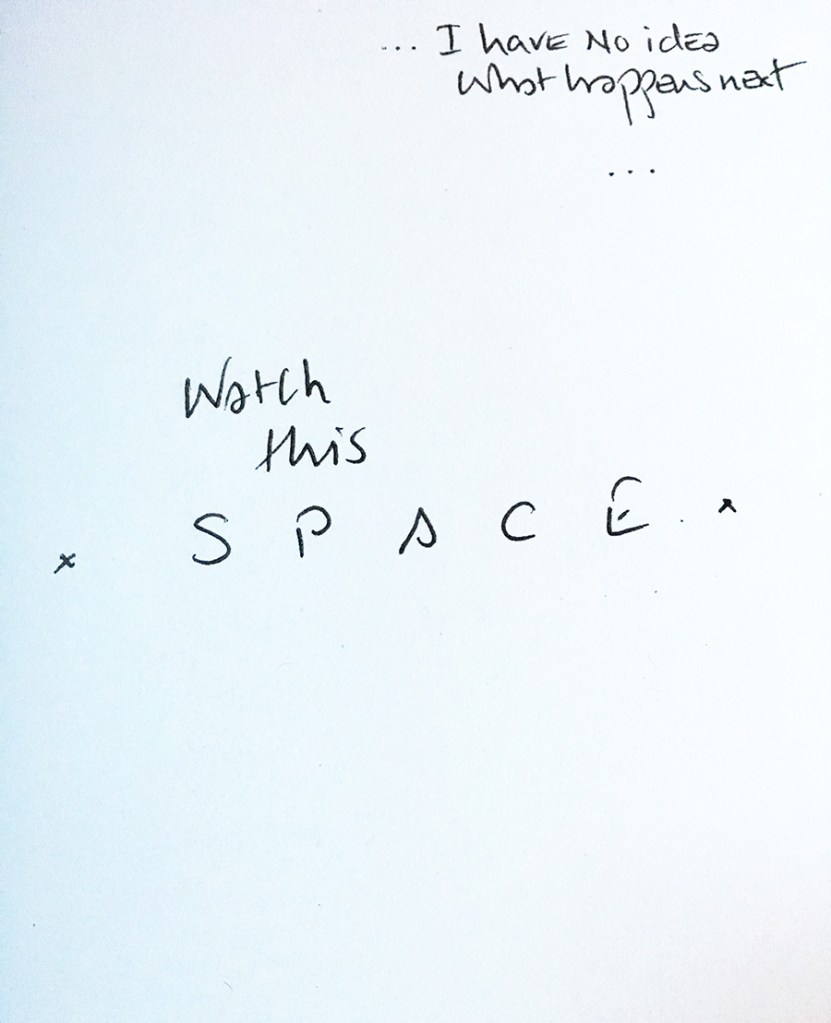 ... I have No idea
What happens next
...
Watch
this
x S P A C E . x